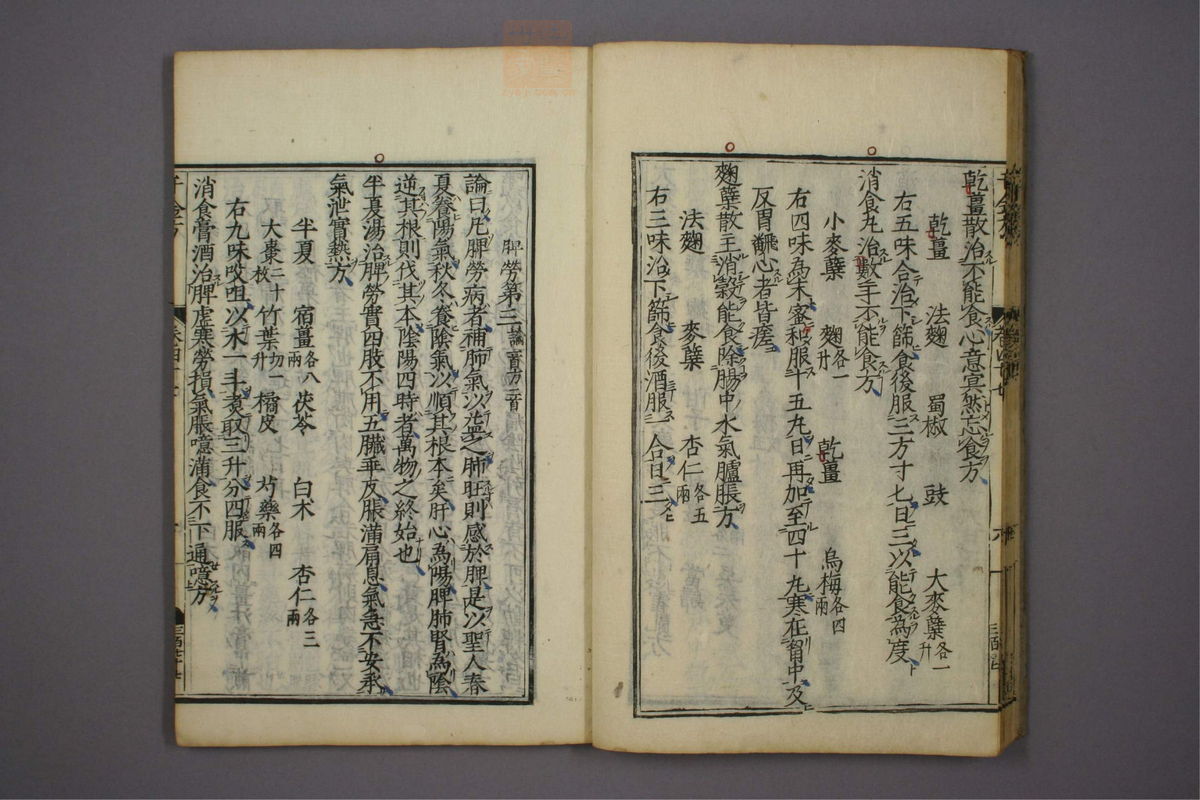 乾薑散治不能食心意冥然忘食方
乾薑 法麴 蜀椒 豉 大麥蘗各一升
右五味合治下篩食後服三方寸七日三以能食為度
消食丸治數手不能食方
小麥蘗 麴各一升 乾薑 烏梅各四兩
右四味為末蜜和服十五丸日再加至四十丸寒在胷中及
反胃飜心者皆瘥
麴蘗散主消穀能食除腸中水氣臚脹方
法麴 麥蘗 杏仁各五兩
右三味治下篩食後酒服一合日三
脾勞第三論一首方三首
論曰凡脾勞病者補肺氣以益之肺旺則感於脾是以聖人春
夏養陽氣秋冬養陰氣以順其根本矣肝心為陽脾肺腎為陰
逆其根則伐其本陰陽四時者萬物之終始也
半夏湯治脾勞實四肢不用五臟乖反脹滿肩息氣急不安承
氣泄實熱方
半夏 宿薑各八兩 茯苓 白朮 杏仁各三兩
大棗二十枚 竹葉切一升 橘皮 芍藥各四兩
右九味㕮咀以水一斗煮取三升分四服
消食膏酒治脾虛寒勞損氣脹噫滿食不下通噫方